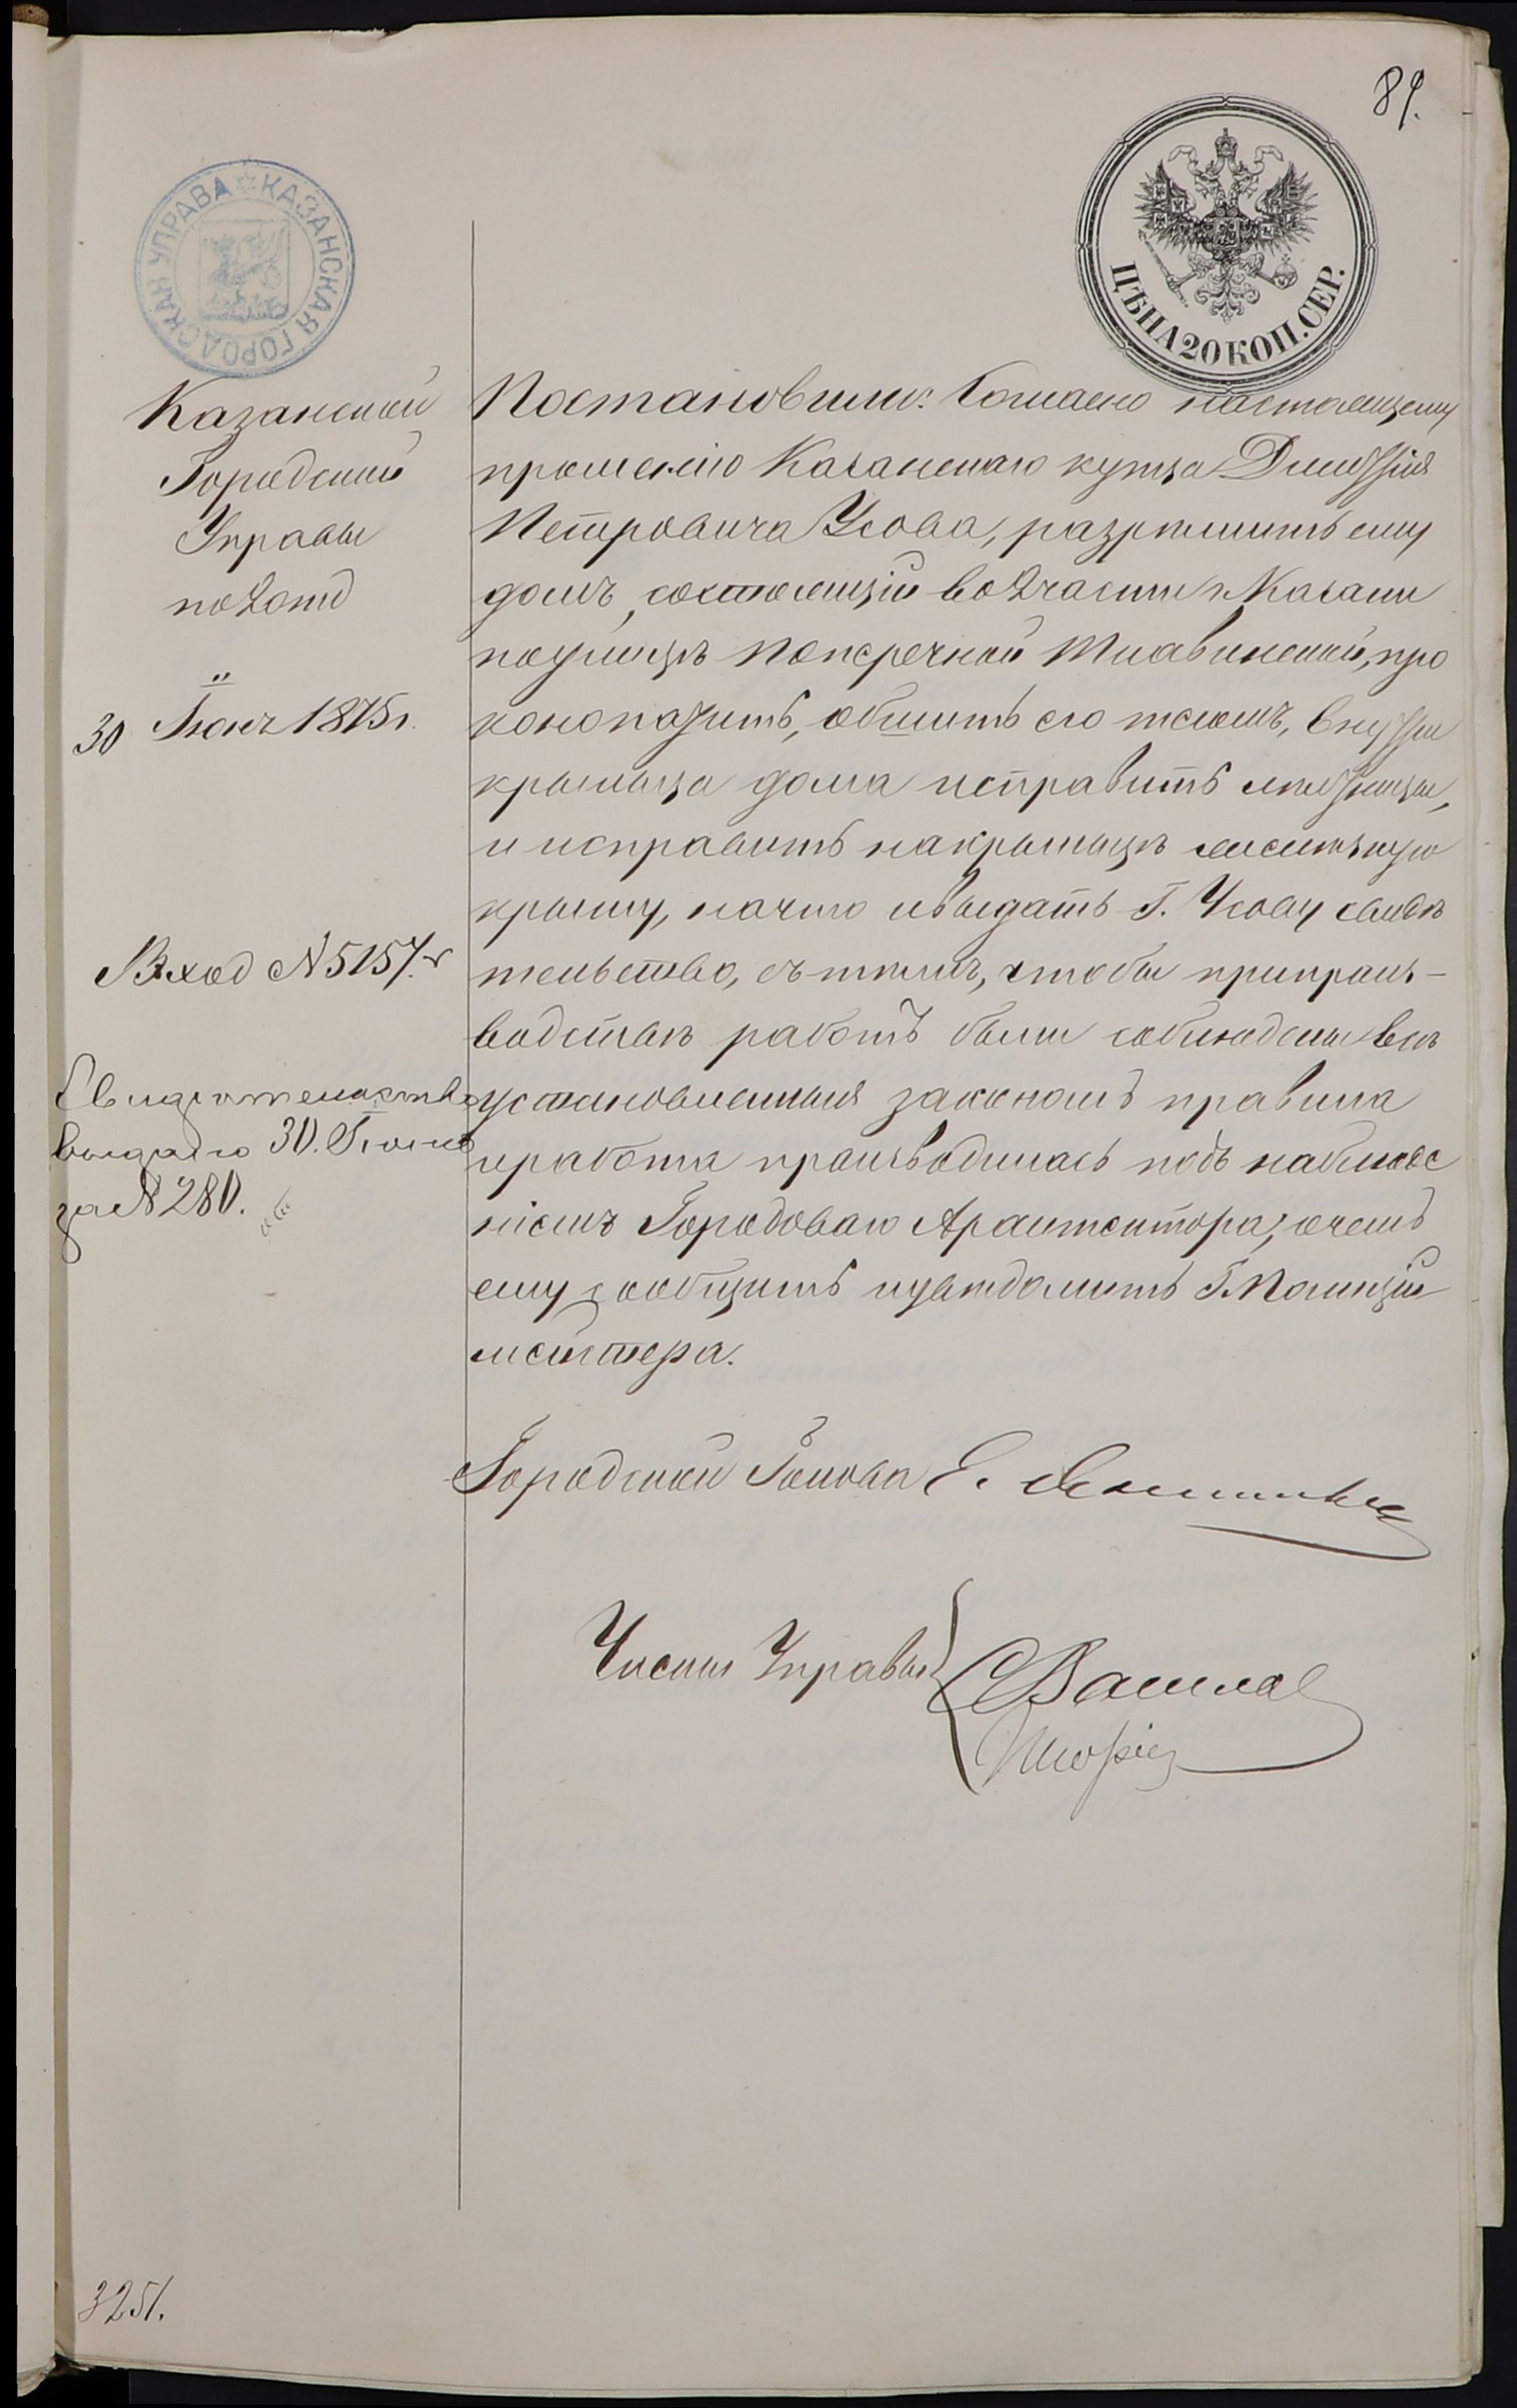 89.
КАЗАНСКАЯ ГОРОДСКАЯ УПРАВА
ЦѢНА 20 КОП. СЕР.
Казанской
Городской
Управы
по 2 отд
30 Іюня 1875 г.
Вход №5157.
Свидетельство
выдано 30. Іюня
за №280.
Постановили: Согласно настоящему
прошенію Казанскаго купца Дмитрія
Петровича Усова, разрѣшить ему
домъ, состоящій во 2 части г. Казани
по улицѣ Поперечной Тихвинской, про
конопатить, обшить его тесомъ, внутри
крыльца дома исправить лѣстницы,
и исправить на крыльцѣ желѣзную
крышу, на что и выдать Г. Усову свидѣ
тельство, съ тѣмъ, чтобы при произ-
водствѣ работъ были соблюдены всѣ
установленныя закономъ правила
и работа производилась подъ наблюде
ніемъ Городоваго Архитектора, о чемъ
ему сообщить и увѣдомить Г. Полицій
мейстера.
Городской Голова Е.
Члены Управы
3251.